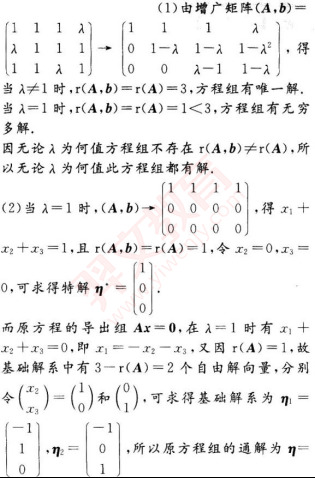 (1)由增广矩阵(A,b)=
(1 1 1 λ
λ 1 1 1
1 1 λ 1) → (1 1 1 λ
0 1-λ 1-λ 1-λ²
0 0 λ-1 1-λ), 得
当 λ≠1 时,r(A,b)=r(A)=3,方程组有唯一解.
当 λ=1 时,r(A,b)=r(A)=1<3,方程组有无穷
多解.
因无论 λ 为何值方程组不存在 r(A,b)≠r(A),所
以无论 λ 为何值此方程组都有解.
(2)当 λ=1 时,(A,b)→(1 1 1 1
0 0 0 0
0 0 0 0),得 x₁+
x₂+x₃=1,且 r(A,b)=r(A)=1,令 x₂=0,x₃=
0,可求得特解 η*=(1
0
0).
而原方程的导出组 Ax=0,在 λ=1 时有 x₁+
x₂+x₃=0,即 x₁=-x₂-x₃,又因 r(A)=1,故
基础解系中有 3-r(A)=2 个自由解向量,分别
令(x₂
x₃)=(1
0)和(0
1),可求得基础解系为 η₁=
(-1
1
0),η₂=(-1
0
1),所以原方程组的通解为 η=